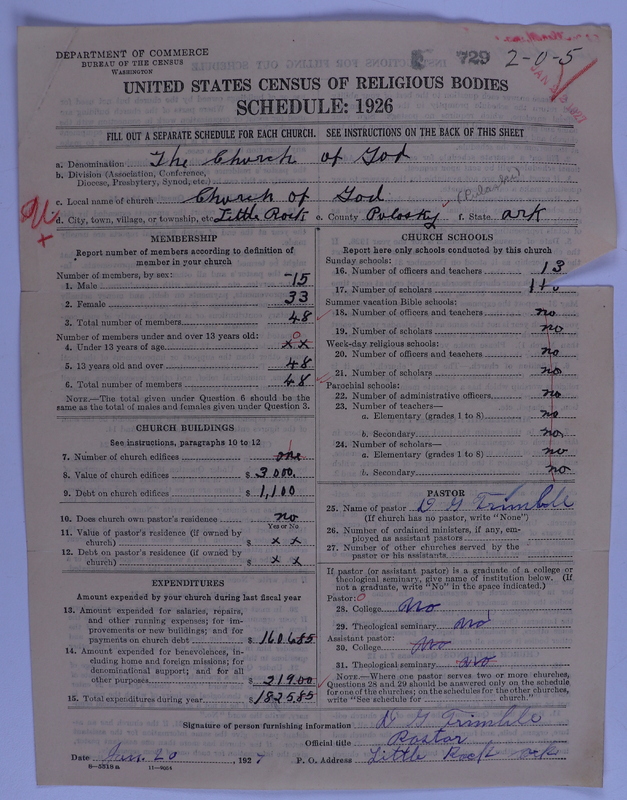 DEPARTMENT OF COMMERCE
BUREAU OF THE CENSUS
WASHINGTON
729 2-0-5
UNITED STATES CENSUS OF RELIGIOUS BODIES
SCHEDULE: 1926
FILL OUT A SEPARATE SCHEDULE FOR EACH CHURCH. SEE INSTRUCTIONS ON THE BACK OF THIS SHEET
a. Denomination The Church of God
b. Division (Association, Conference, Diocese, Presbytery, Synod, etc.)
c. Local name of church Church of God (Pulaski)
d. City, town, village, or township, etc. Little Rock e. County Polosky f. State ark
MEMBERSHIP
Report number of members according to definition of member in your church
Number of members, by sex:
1. Male 15
2. Female 33
3. Total number of members 48
Number of members under and over 13 years old:
4. Under 13 years of age x x 0
5. 13 years old and over 48
6. Total number of members 48
NOTE.—The total given under Question 6 should be the same as the total of males and females given under Question 3.
CHURCH BUILDINGS
See instructions, paragraphs 10 to 12
7. Number of church edifices one
8. Value of church edifices $ 3000.
9. Debt on church edifices $ 1,100
10. Does church own pastor's residence no
Yes or No
11. Value of pastor's residence (if owned by church) $ x x
12. Debt on pastor's residence (if owned by church) $ x x
EXPENDITURES
Amount expended by your church during last fiscal year
13. Amount expended for salaries, repairs, and other running expenses; for improvements or new buildings; and for payments on church debt $ 1606.85
14. Amount expended for benevolences, including home and foreign missions; for denominational support; and for all other purposes $ 219.00
15. Total expenditures during year $ 1825.85
CHURCH SCHOOLS
Report here only schools conducted by this church
Sunday schools:
16. Number of officers and teachers 13
17. Number of scholars
Summer vacation Bible schools:
18. Number of officers and teachers no
19. Number of scholars no
Week-day religious schools:
20. Number of officers and teachers no
21. Number of scholars no
Parochial schools:
22. Number of administrative officers no
23. Number of teachers—
a. Elementary (grades 1 to 8) no
b. Secondary no
24. Number of scholars—
a. Elementary (grades 1 to 8) no
b. Secondary no
PASTOR
25. Name of pastor D G Trimble
(If church has no pastor, write "None")
26. Number of ordained ministers, if any, employed as assistant pastors
27. Number of other churches served by the pastor or his assistants
If pastor (or assistant pastor) is a graduate of a college or theological seminary, give name of institution below. (If not a graduate, write "No" in the space indicated.)
Pastor: 0
28. College No
29. Theological seminary No
Assistant pastor:
30. College No
31. Theological seminary No
NOTE.—Where one pastor serves two or more churches, Questions 28 and 29 should be answered only on the schedule for one of the churches; on the schedules for the other churches, write "See schedule for church."
Signature of person furnishing information D G Trimble
Official title Pastor
Date Jan. 20, 1927 P. O. Address Little Rock ark
8—5518 a 11—9604